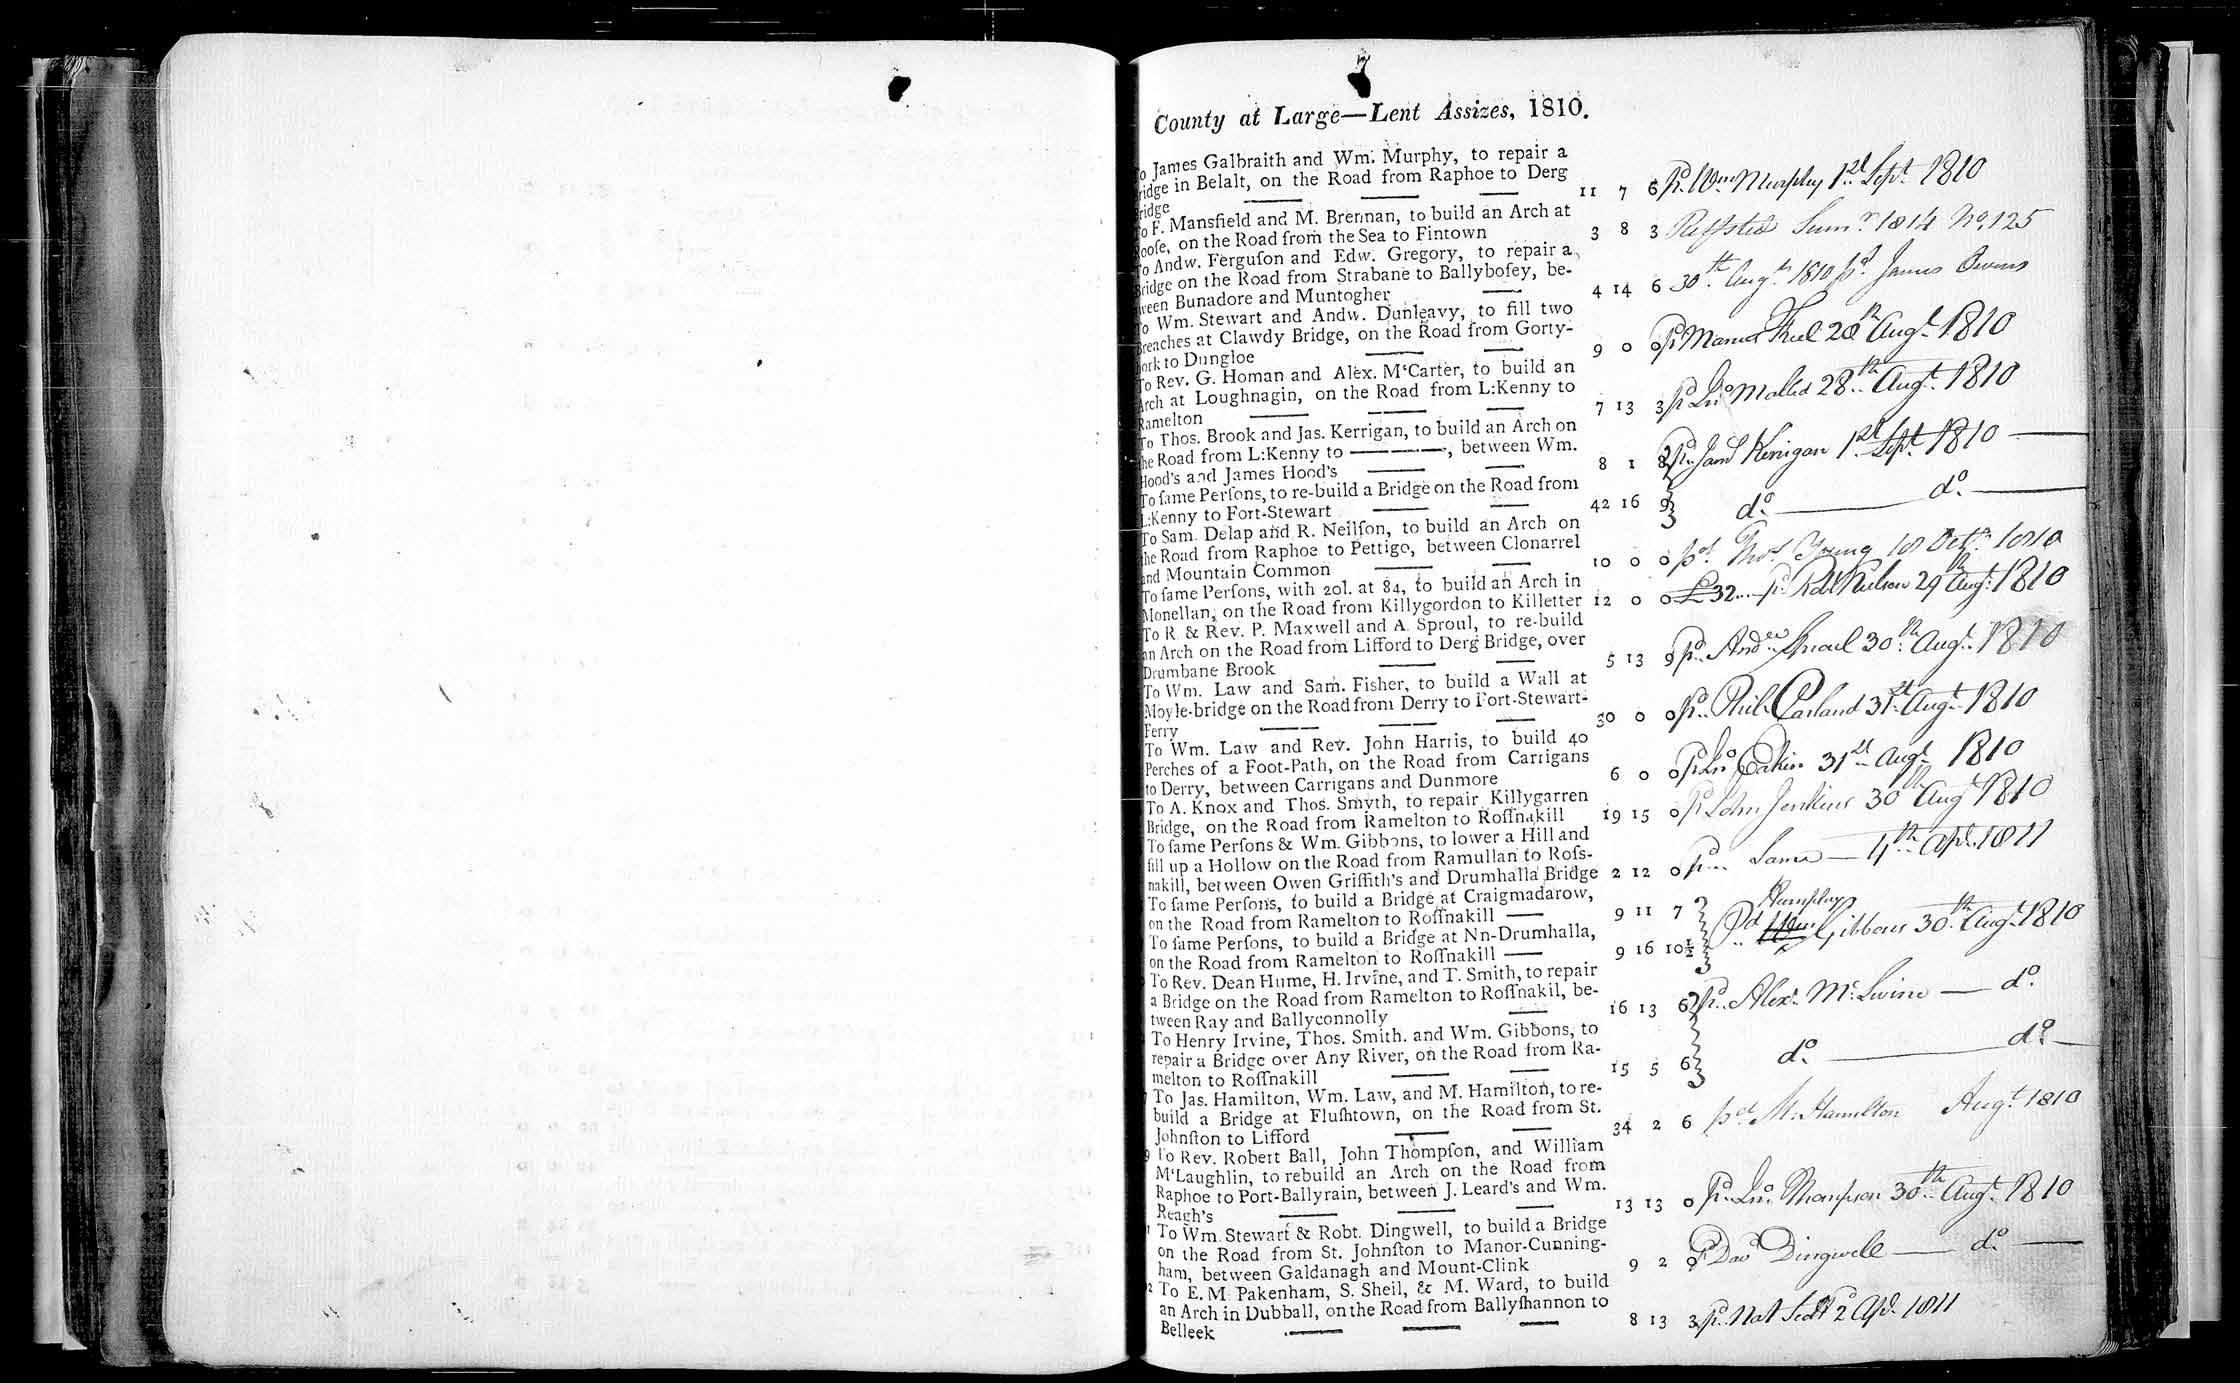 County at Large—Lent Assizes, 1810.
To James Galbraith and Wm. Murphy, to repair a
Bridge in Belalt, on the Road from Raphoe to Derg
Bridge 11 7 6 Pd. Wm Murphy 1st Sept. 1810
To F. Mansfield and M. Brennan, to build an Arch at
Rooſe, on the Road from the Sea to Fintown 3 8 3 Sumr. 1814 No. 125
To Andw. Ferguſon and Edw. Gregory, to repair a
Bridge on the Road from Strabane to Ballybofey, be-
tween Bunadore and Muntogher 4 14 6 30th Augt. 1810 pd. James Owens
To Wm. Stewart and Andw. Dunleavy, to fill two
Breaches at Clawdy Bridge, on the Road from Gorty-
hork to Dungloe 9 0 0 Pd Manus 28th Augt. 1810
To Rev. G. Homan and Alex. M‘Carter, to build an
Arch at Loughnagin, on the Road from L:Kenny to
Ramelton 7 13 3 pd Jno 28th Augt. 1810
To Thos. Brook and Jas. Kerrigan, to build an Arch on
the Road from L:Kenny to ———, between Wm.
Hood's and James Hood's 8 1 8 Pd. Jams Kerrigan 1st Sept. 1810
To ſame Perſons, to re-build a Bridge on the Road from
L:Kenny to Fort-Stewart 42 16 9 do. do.
To Sam. Delap and R. Neilſon, to build an Arch on
the Road from Raphoe to Pettigo, between Clonarrel
and Mountain Common 10 0 0 pd. Thos Young 18 Octr. 1810
To ſame Perſons, with 20l. at 84, to build an Arch in
Monellan, on the Road from Killygordon to Killetter 12 0 0 £32 pd. Robt Neilson 29th Augt. 1810
To R. & Rev. P. Maxwell and A. Sproul, to re-build
an Arch on the Road from Lifford to Derg Bridge, over
Drumbane Brook 5 13 9 pd. Andw Sproul 30th Augt. 1810
To Wm. Law and Sam. Fisher, to build a Wall at
Moyle-bridge on the Road from Derry to Fort-Stewart-
Ferry 30 0 0 pd. Phil. 31st Augt. 1810
To Wm. Law and Rev. John Harris, to build 40
Perches of a Foot-Path, on the Road from Carrigans
to Derry, between Carrigans and Dunmore 6 0 0 Pd Jno Eakin 31st Augt 1810
To A. Knox and Thos. Smyth, to repair Killygarren
Bridge, on the Road from Ramelton to Roſſnakill 19 15 0 pd John Jenkins 30th Augt 1810
To ſame Perſons & Wm. Gibbons, to lower a Hill and
fill up a Hollow on the Road from Ramullan to Roſs-
nakill, between Owen Griffith's and Drumhalla Bridge 2 12 0 pd. Same — 4th Apl. 1811
To ſame Perſons, to build a Bridge at Craigmadarow,
on the Road from Ramelton to Roſſnakill 9 11 7 Humphry
To ſame Perſons, to build a Bridge at Nn-Drumhalla, Pd Wm Gibbons 30th Augt. 1810
on the Road from Ramelton to Roſſnakill 9 16 10½
To Rev. Dean Hume, H. Irvine, and T. Smith, to repair
a Bridge on the Road from Ramelton to Roſſnakil, be-
tween Ray and Ballyconnolly 16 13 6 pd. Alexr. — do.
To Henry Irvine, Thos. Smith. and Wm. Gibbons, to
repair a Bridge over Any River, on the Road from Ra-
melton to Roſſnakill 15 5 6 do. do.
To Jas. Hamilton, Wm. Law, and M. Hamilton, to re-
build a Bridge at Fluſhtown, on the Road from St.
Johnſton to Lifford 34 2 6 pd. M. Hamilton Augt. 1810
9 To Rev. Robert Ball, John Thompſon, and William
M‘Laughlin, to rebuild an Arch on the Road from
Raphoe to Port-Ballyrain, between J. Leard's and Wm.
Reagh's 13 13 0 pd. Jno. Thompson 30th Augt. 1810
To Wm. Stewart & Robt. Dingwell, to build a Bridge
on the Road from St. Johnſton to Manor-Cunning-
ham, between Galdanagh and Mount-Clink 9 2 0 pd Davd Dingwell — do.
To E. M. Pakenham, S. Sheil, & M. Ward, to build
an Arch in Dubball, on the Road from Ballyſhannon to
Belleek 8 13 3 pd. Nat 2 Apl. 1811